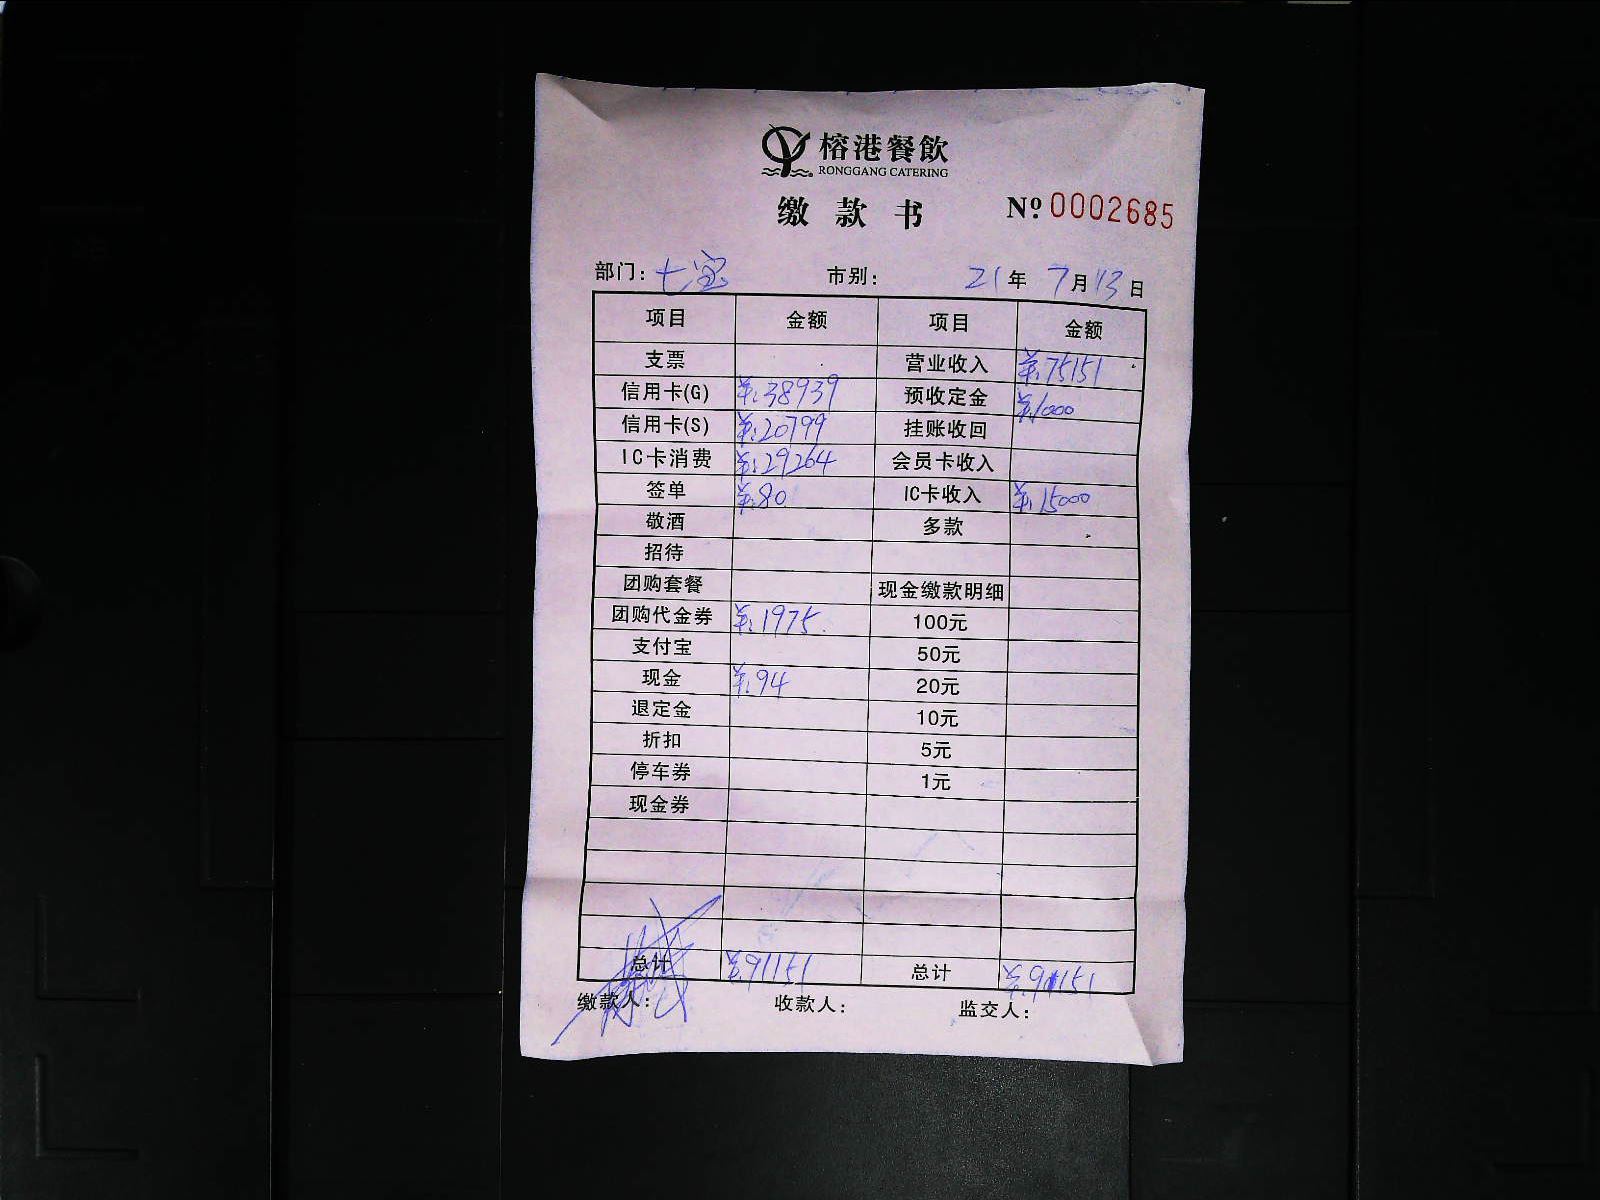 榕港餐飲
RONGGANG CATERING
缴款书 № 0002685
部门: 七宝 市别: 21年 7月13日
项目 金额 项目 金额
支票 营业收入 ¥:75151
信用卡(G) ¥:38939 预收定金 ¥:1000
信用卡(S) ¥:20799 挂账收回
IC卡消费 ¥:29264 会员卡收入
签单 ¥:80 IC卡收入 ¥:15000
敬酒 多款
招待
团购套餐 现金缴款明细
团购代金券 ¥:1975. 100元
支付宝 50元
现金 ¥:94 20元
退定金 10元
折扣 5元
停车券 1元
现金券
总计 ¥:91151 总计 ¥:91151
缴款人: 收款人: 监交人: